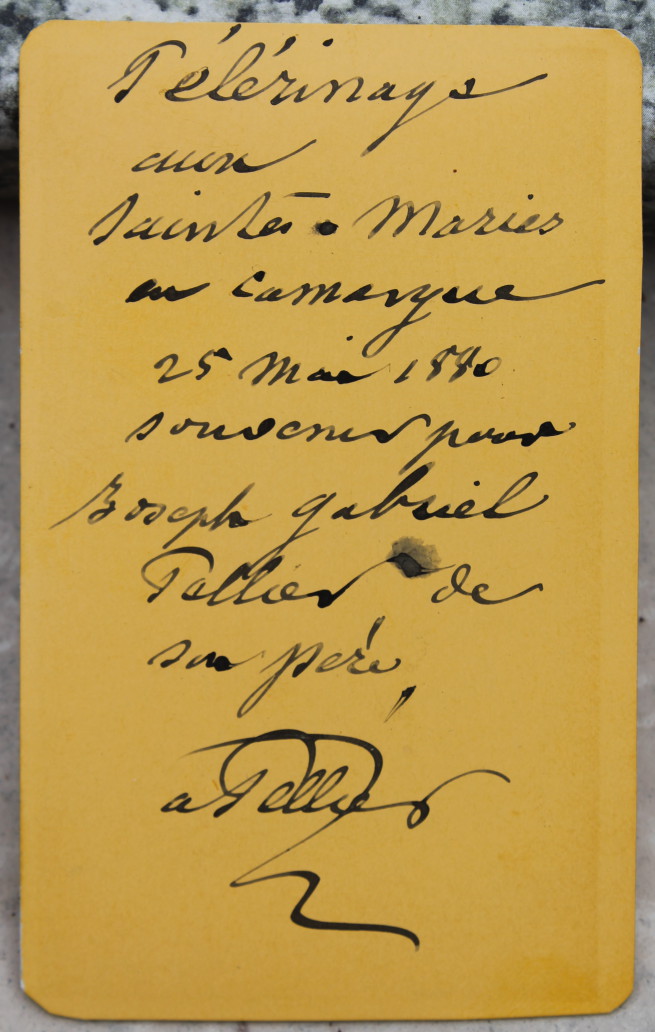 Pélérinage
aux
Saintes-Maries
en Camargue
25 Mai 1880
souvenir pour
Joseph gabriel
Tallier de
son père
a Tallier